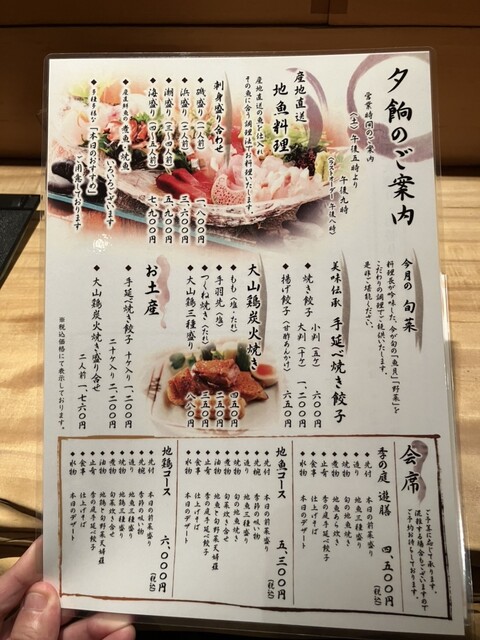 夕餉のご案内
営業時間のご案内
(土) 午後五時より
午後九時
(ラストオーダー 午後八時)
産地直送
地魚料理
産地直送の魚を仕入れ
その魚に合う調理法でお料理いたします。
刺身盛り合わせ
◆磯盛り(一人前) 一、八〇〇円
◆浜盛り(二人前) 三、六〇〇円
◆潮盛り(三〜四人前) 五、九〇〇円
◆海盛り(四〜五人前) 七、九〇〇円
◆産直鮮魚の煮魚や焼魚
いろいろございます
◆多種多様な「本日のおすすめ」
ご用意しております
今月の旬菜
料理長が吟味した、今が旬の「魚貝」「野菜」を
こだわりの調理でご提供いたします。
是非ご堪能ください。
美味伝承 手延べ焼き餃子
◆焼き餃子 小判(五ケ) 六〇〇円
大判(十ケ) 一、二〇〇円
◆揚げ餃子(甘酢あんかけ) 六五〇円
大山鶏炭火焼き
◆もも(塩・たれ) 四五〇円
◆手羽先(塩) 二五〇円
◆つくね焼き(たれ) 三五〇円
◆大山鶏三種盛り 八八〇円
お土産
◆手延べ焼き餃子 十ケ入り 一、二〇〇円
二十ケ入り 二、二〇〇円
◆大山鶏炭火焼き盛り合せ
二人前 一、七六〇円
※税込価格にて表示しております。
会席
ご予算に応じて承ります。
混雑する場合もございますので
ご予約お待ちしております
季の庭 遊膳 四、五〇〇円(税込)
◆先付 本日の前菜盛り
◆造り 地魚三種盛り
◆焼物 旬の地魚焼き
◆煮物 地魚あら炊き
◆止肴 季の庭手延べ餃子
◆食事 仕上げそば
◆水物 本日のデザート
地魚コース 五、三〇〇円(税込)
◆先付 本日の前菜盛り
◆先椀 季節の吸い物
◆造り 地魚三種盛り
◆焼物 旬の地魚焼き
◆煮物 旬菜炊き合せ
◆油物 地魚と旬野菜天婦羅
◆止肴 季の庭手延べ餃子
◆食事 仕上げそば
◆水物 本日のデザート
地鶏コース 六、〇〇〇円(税込)
◆先付 本日の前菜盛り
◆先椀 季節の吸い物
◆造り 地魚三種盛り
◆焼物 地鶏三種盛り
◆煮物 旬菜炊き合せ
◆油物 地鶏と旬野菜天婦羅
◆止肴 季の庭手延べ餃子
◆食事 仕上げそば
◆水物 本日のデザート